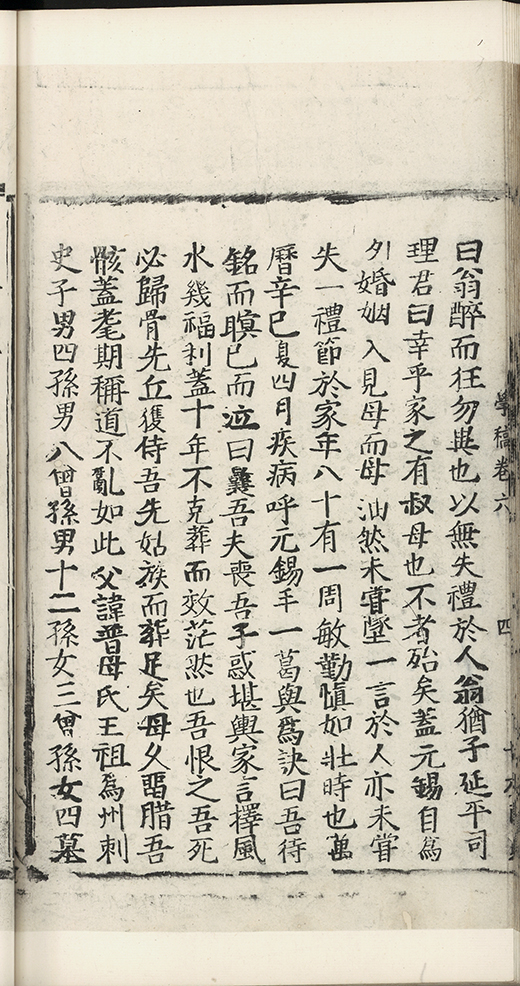 學稿卷六
四
曰翁醉而狂勿與也以無失禮於人翁猶子延平司
理君曰幸乎家之有叔母也不者殆矣蓋元錫自為
外婚姻入見母而母汕然未甞墜一言於人亦未甞
失一禮節於家年八十有一周敏勤慎如壯時也萬
曆辛巳夏四月疾病呼元錫手一葛與為訣曰吾待
銘而瞑已而泣曰曩吾夫喪吾子惑堪輿家言擇風
水幾福利蓋十年不克葬而效茫然也吾恨之吾死
必歸骨先丘獲侍吾先姑族而葬足矣母久畱腊吾
骸蓋耄期稱道不亂如此父諱普母氏王祖為州刺
史子男四孫男八曾孫男十二孫女三曾孫女四墓